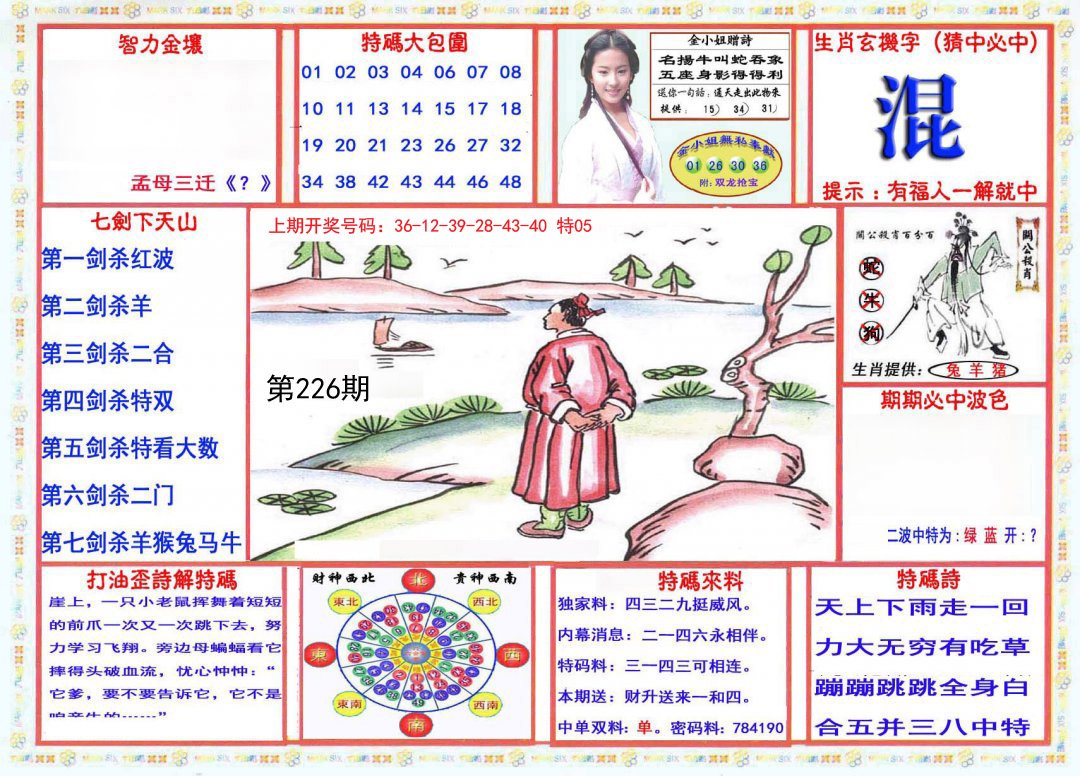 智力金壤
孟母三迁《？》
特碼大包圍
01 02 03 04 06 07 08
10 11 13 14 15 17 18
19 20 21 23 26 27 32
34 38 42 43 44 46 48
金小姐赠詩
名揚牛叫蛇吞象
五座身影得得利
送你一句話：通天走出此物来
提供： 15） 34） 31）
金小姐無私奉獻
01 26 30 36
附：双龙抢宝
生肖玄機字（猜中必中）
混
提示：有福人一解就中
七劍下天山
第一剑杀红波
第二剑杀羊
第三剑杀二合
第四剑杀特双
第五剑杀特看大数
第六剑杀二门
第七剑杀羊猴兔马牛
上期开奖号码：36-12-39-28-43-40 特05
第226期
關公殺肖百分百
關公殺肖
蛇
牛
狗
生肖提供：兔 羊 猪
期期必中波色
二波中特为：绿 蓝 开：？
打油歪詩解特碼
崖上，一只小老鼠挥舞着短短
的前爪一次又一次跳下去，努
力学习飞翔。旁边母蝙蝠看它
摔得头破血流，忧心忡忡：“
它爹，要不要告诉它，它不是
咱亲生的……”
財神西北
貴神西南
北
東北
西北
東
西
東南
西南
南
特碼來料
独家料：四三二九挺威风。
内幕消息：二一四六永相伴。
特码料：三一四三可相连。
本期送：财升送来一和四。
中单双料：单。密码料：784190
特碼詩
天上下雨走一回
力大无穷有吃草
蹦蹦跳跳全身白
合五并三八中特